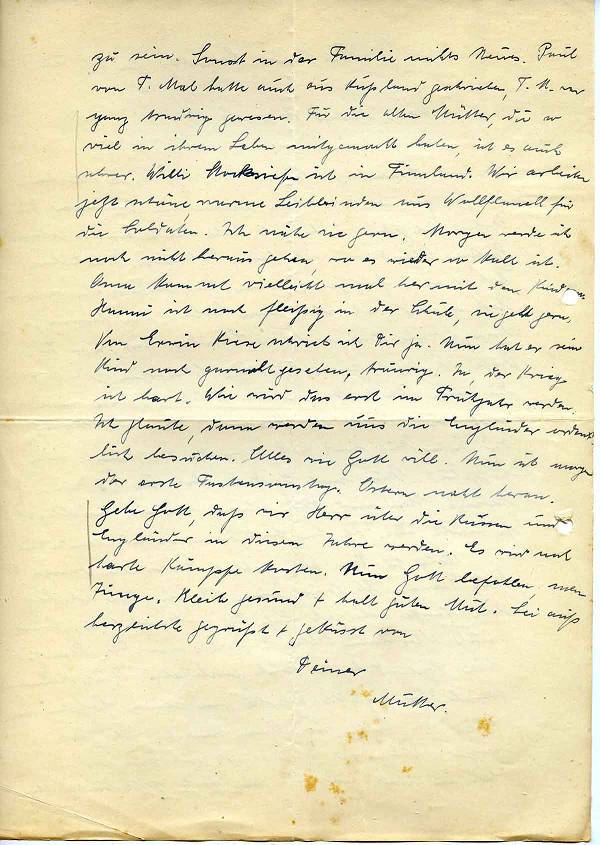 zu sein. Sonst in der Familie nichts Neues. Paul
von T. Mal hatte auch aus Rußland geschrieben, T. M. war
ganz traurig gewesen. Für die alten Mütter, die so
viel in ihrem Leben mitgemacht haben, ist es auch
schwer. Willi ist in Finnland. Wir arbeiten
jetzt schöne warme Leibbinden aus Wollflanell für
die Soldaten. Ich nähe sie gern. Morgen werde ich
noch nicht heraus gehen, wo es wieder so kalt ist.
Anna kommt vielleicht mal her mit den Kindern
Hanni ist noch fleißig in der Schule, sie geht gern.
Von Erwin Kiese schrieb ich Dir ja. Nun hat er sein
Kind noch garnicht gesehen, traurig. Ja, der Krieg
ist hart. Wie wird das erst im Frühjahr werden.
Ich glaube, dann werden uns die Engländer ordent-
lich besuchen. Alles wie Gott will. Nun ist morgen
der erste Fastensonntag. Ostern naht heran.
Gebe Gott, daß wir Herr über die Russen und
Engländer in diesem Jahre werden. Es wird noch
harte Kämpfe kosten. Nun Gott befohlen, mein
Junge. Bleib gesund + halt guten Mut. Sei aufs
herzlichste gegrüßt + geküsst von
Deiner
Mutter.